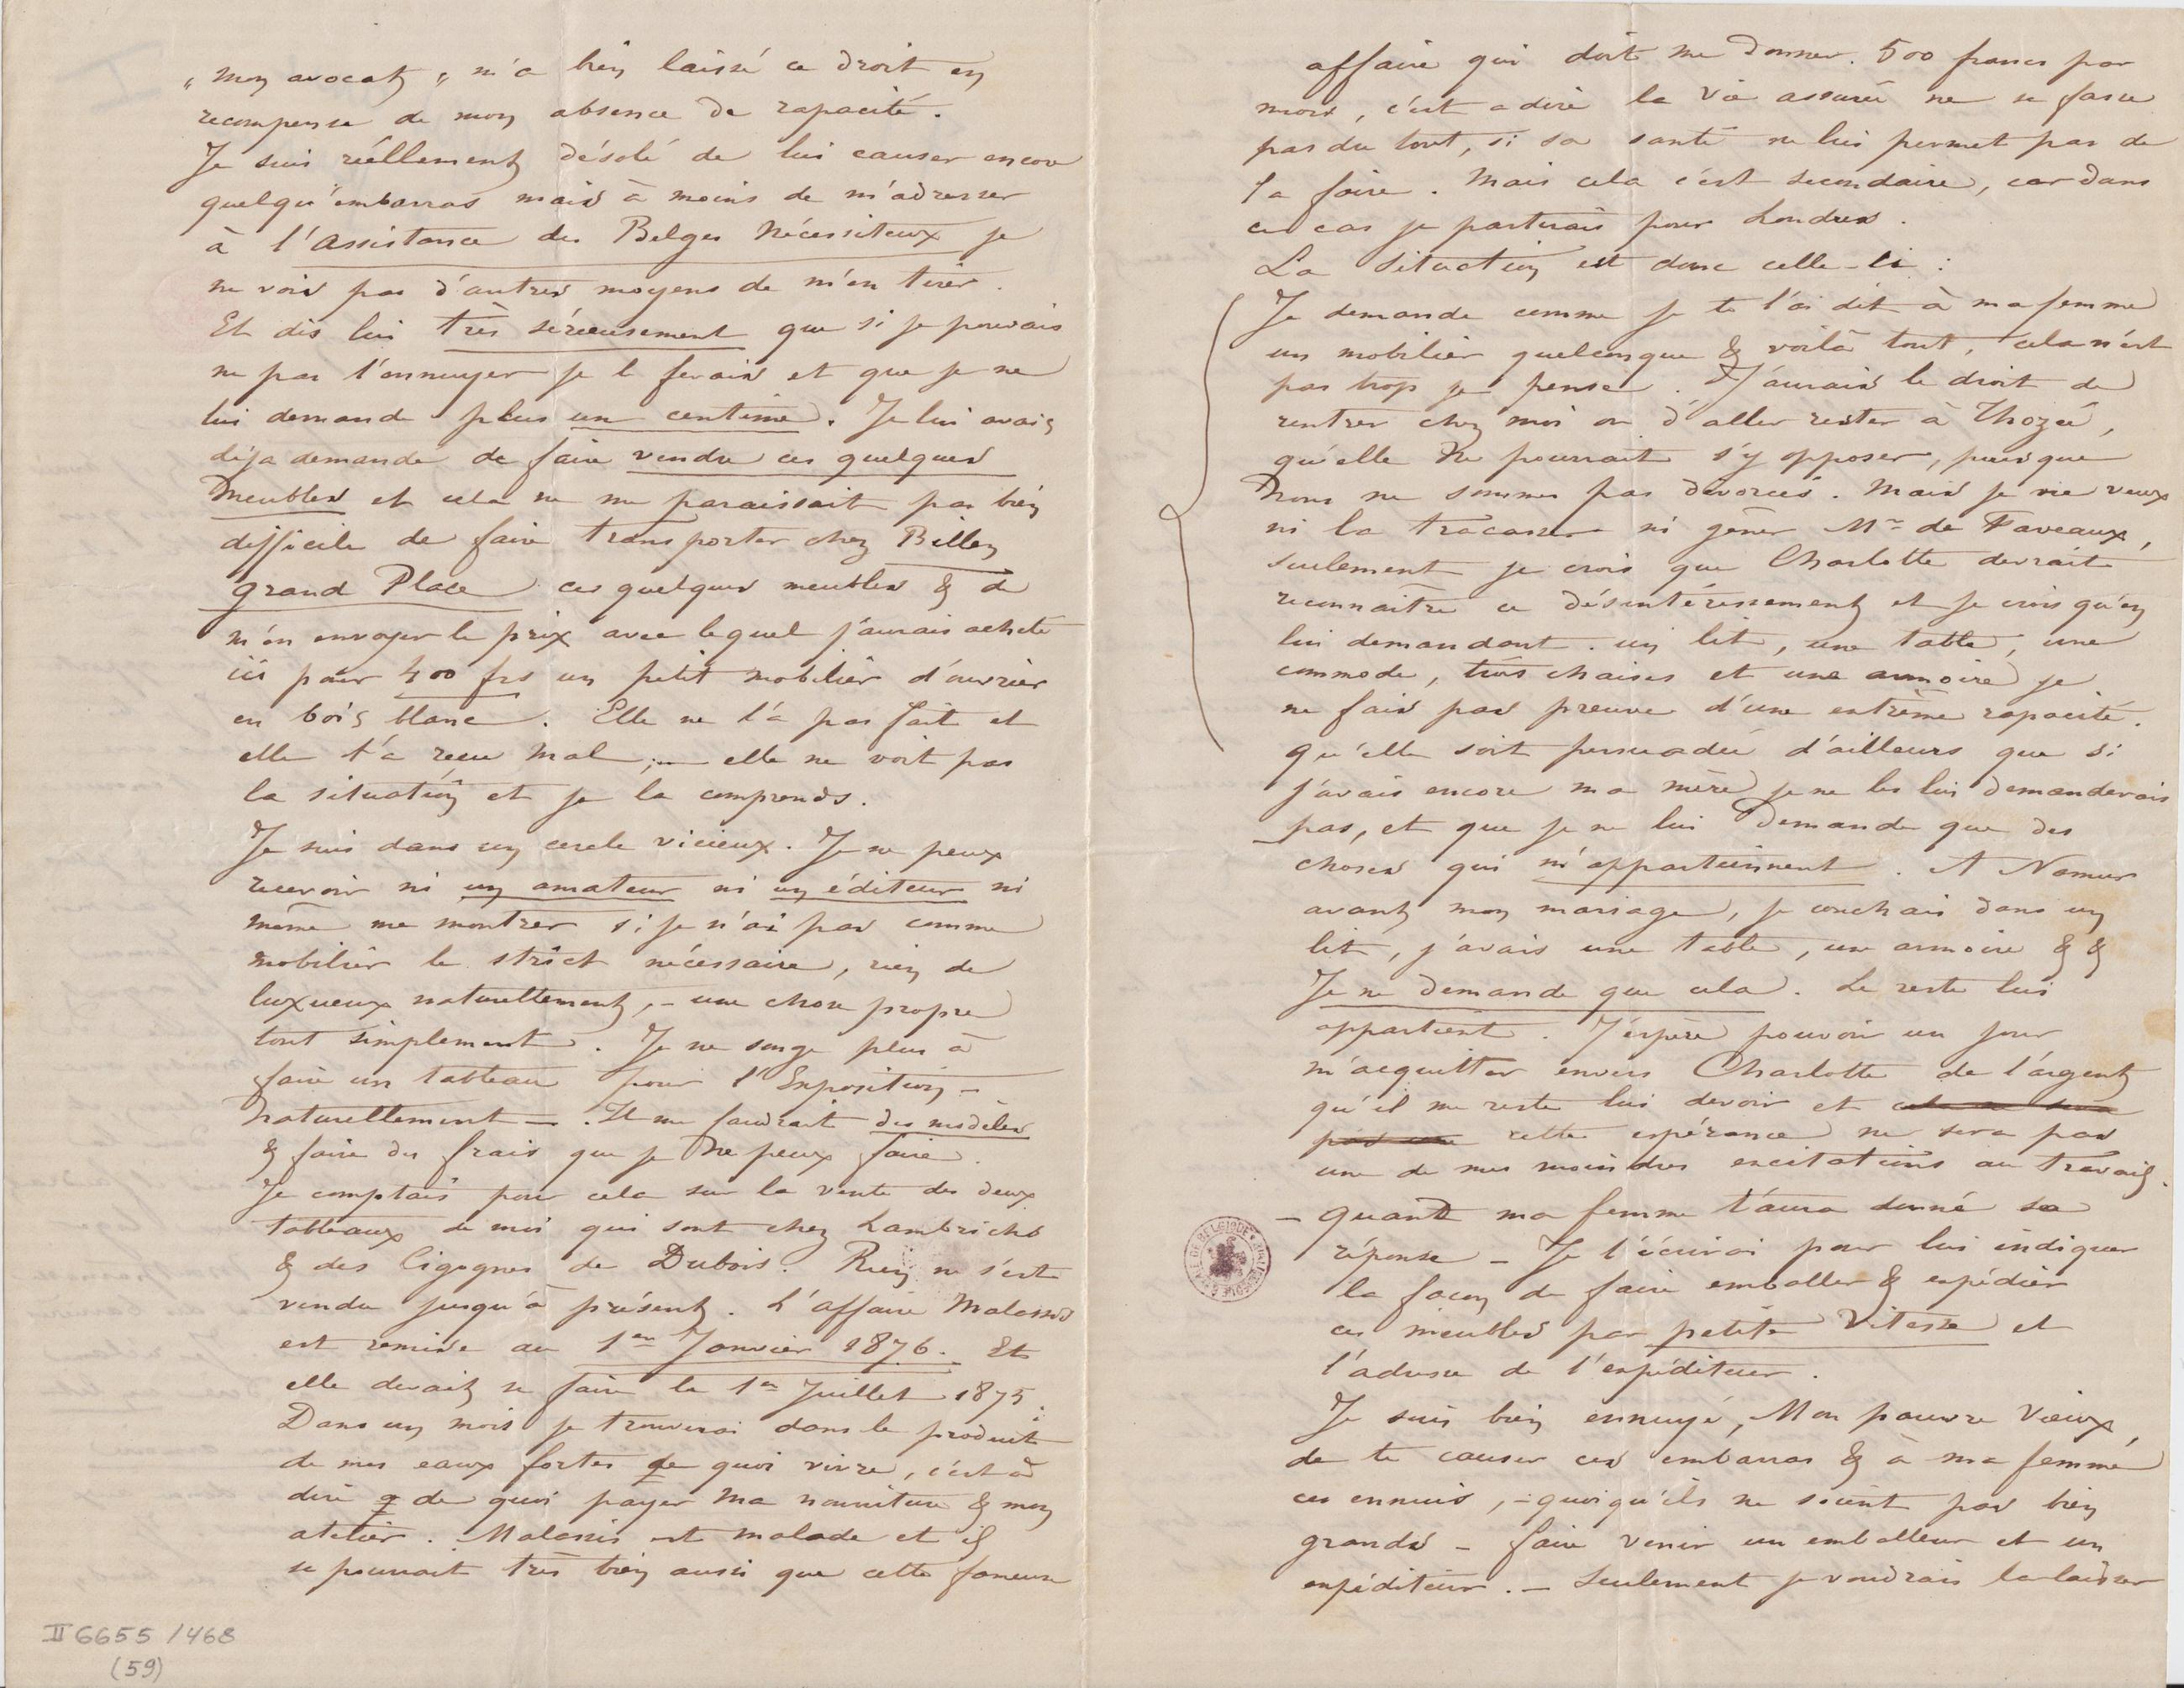 "mon avocat" m'a bien laissé ce droit en
recompense de mon absence de rapacité.
Je suis réellement désolé de lui causer encore
quelqu'embarras mais à moins de m'adresser
à l'assistance des Belges Nécessiteux je
ne vois pas d'autres moyens de m'en tirer.
Et dis lui très sérieusement que si je pouvais
ne pas l'ennuyer je l ferais et que je ne
lui demande plus un centime. Je lui avais
déja demandé de faire vendre ces quelques
meubles et cela ne me paraissait pas bien
difficile de faire transporter chez Billen
grand Place ces quelques meubles & de
m'en envoyer le prix avec lequel j'aurais acheté
ici pour 400 frs un petit mobilier d'ouvrier
en bois blanc. Elle ne l'a pas fait et
elle t'a reçu mal ;— elle ne voit pas
la situation et je la comprends.
Je suis dans un cercle vicieux. Je ne peux
recevoir ni un amateur ni un éditeur ni
même me montrer si je n'ai pas comme
mobilier le strict nécessaire, rien de
luxueux naturellement, – une chose propre
tout simplement. Je ne songe plus à
faire un tableau pour l'Exposition –
naturellement –. Il me faudrait des modèles
& faire des frais que je ne peux faire.
Je comptais pour cela sur la vente des deux
tableaux de moi qui sont chez Lambrichs
& des Cigognes de Dubois. Rien ne s'est
vendu jusqu'à présent. L'affaire Malassis
est remise au 1er Janvier 1876. Et
elle devait se faire le 1er Juillet 1875.
Dans un mois je trouverai dans le produit
de mes eaux fortes de quoi vivre, c'est à
dire de quoi payer ma nourriture & mon
atelier. Malassis est malade et il
se pourrait très bien aussi que cette fameuse
affaire qui doit me donner 500 francs par
mois, c'est a dire la vie assurée ne se fasse
pas du tout, si sa santé ne lui permet pas de
la faire. Mais cela c'est secondaire, car dans
ce cas je partirais pour Londres.
La situation est donc celle-ci :
Je demande comme je te l'ai dit à ma femme
un mobilier quelconque & voilà tout, cela n'est
pas trop je pense. J'aurais le droit de
rentrer chez moi ou d'aller rester à Thozée,
qu'elle ne pourrait s'y opposer, puisque
nous ne sommes pas divorcés. Mais je ne veux
ni la tracasser ni gêner Mr de Faveaux,
seulement je crois que Charlotte devrait
reconnaitre ce désintéressement et je crois qu'en
lui demandant un lit, une table, une
commode, trois chaises et une armoire je
ne fais pas preuve d'une extrème rapacité.
Qu'elle soit persuadée d'ailleurs que si
j'avais encore ma mère je ne les lui demanderais
pas, et que je ne lui demande que des
choses qui m'appartiennent. A Namur
avant mon mariage, je couchais dans un
lit, j'avais une table, une armoire & &
Je ne demande que cela. Le reste lui
appartient. J'espère pouvoir un jour
m'acquitter envers Charlotte de l'argent
qu'il me reste lui devoir et cela ne sera
pas une cette espérance ne sera pas
une de mes moindres excitations au travail.
– Quand ma femme t'aura donné sa
réponse – Je t'écrirai pour lui indiquer
la façon de faire emballer & expédier
ces meubles par petite Vitesse et
l'adresse de l'expéditeur.
Je suis bien ennuyé, Mon pauvre Vieux,
de te causer ces embarras & à ma femme
ces ennuis, – quoiqu'ils ne soient pas bien
grands – faire venir un emballeur et un
expéditeur. – Seulement je voudrais la laisser
II 6655 / 468
(59)